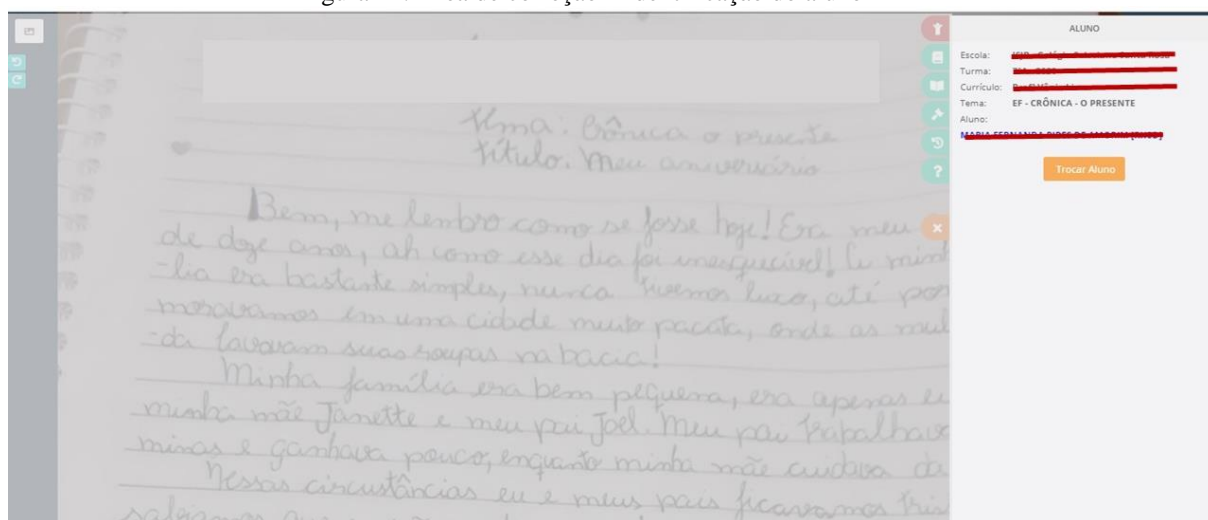 ALUNO
Escola:
Turma:
Currículo:
Tema: EF - CRÔNICA - O PRESENTE
Aluno:
Trocar Aluno
?
Tema: Crônica o presente
Título: Meu aniversário
Bem, me lembro como se fosse hoje! Era meu
de doze anos, ah como esse dia foi inesquecível! A minh
-lia era bastante simples, nunca tivemos luxo, até por
moravamos em uma cidade muito pacata, onde as mul
-da lavavam suas roupas na bacia!
Minha família era bem pequena, era apenas eu
minha mãe Janette e meu pai Joel. Meu pai trabalhava
minas e ganhava pouco, enquanto minha mãe cuidava da
Nessas circustâncias eu e meus pais ficavamos tris